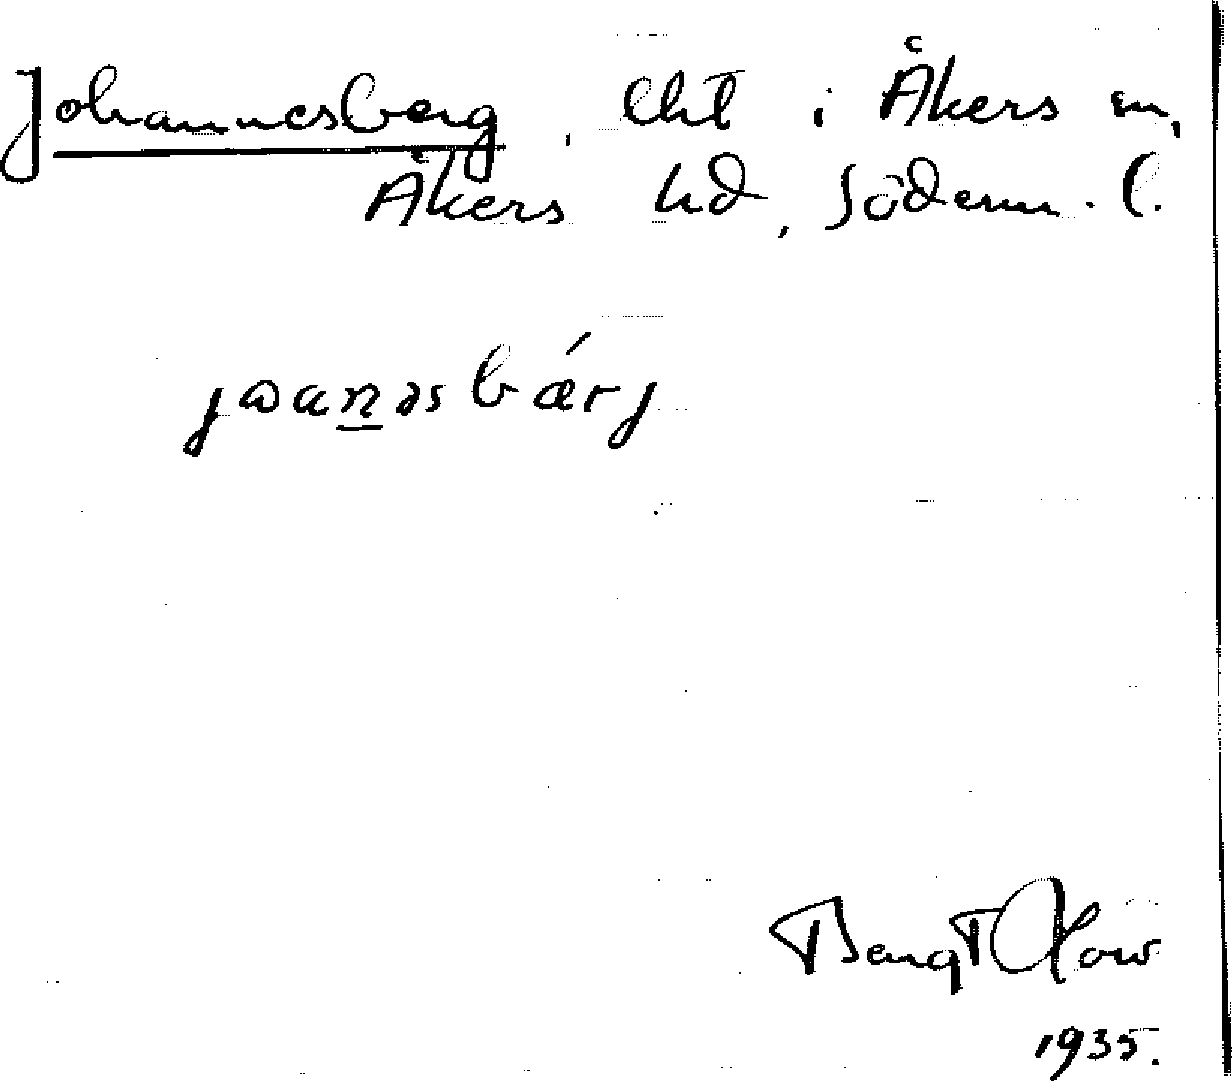 Johannesberg, lht i Åkers sn,
Åkers hd, Söderm. l.
jωanəsbǽrj
Bengt
1935.